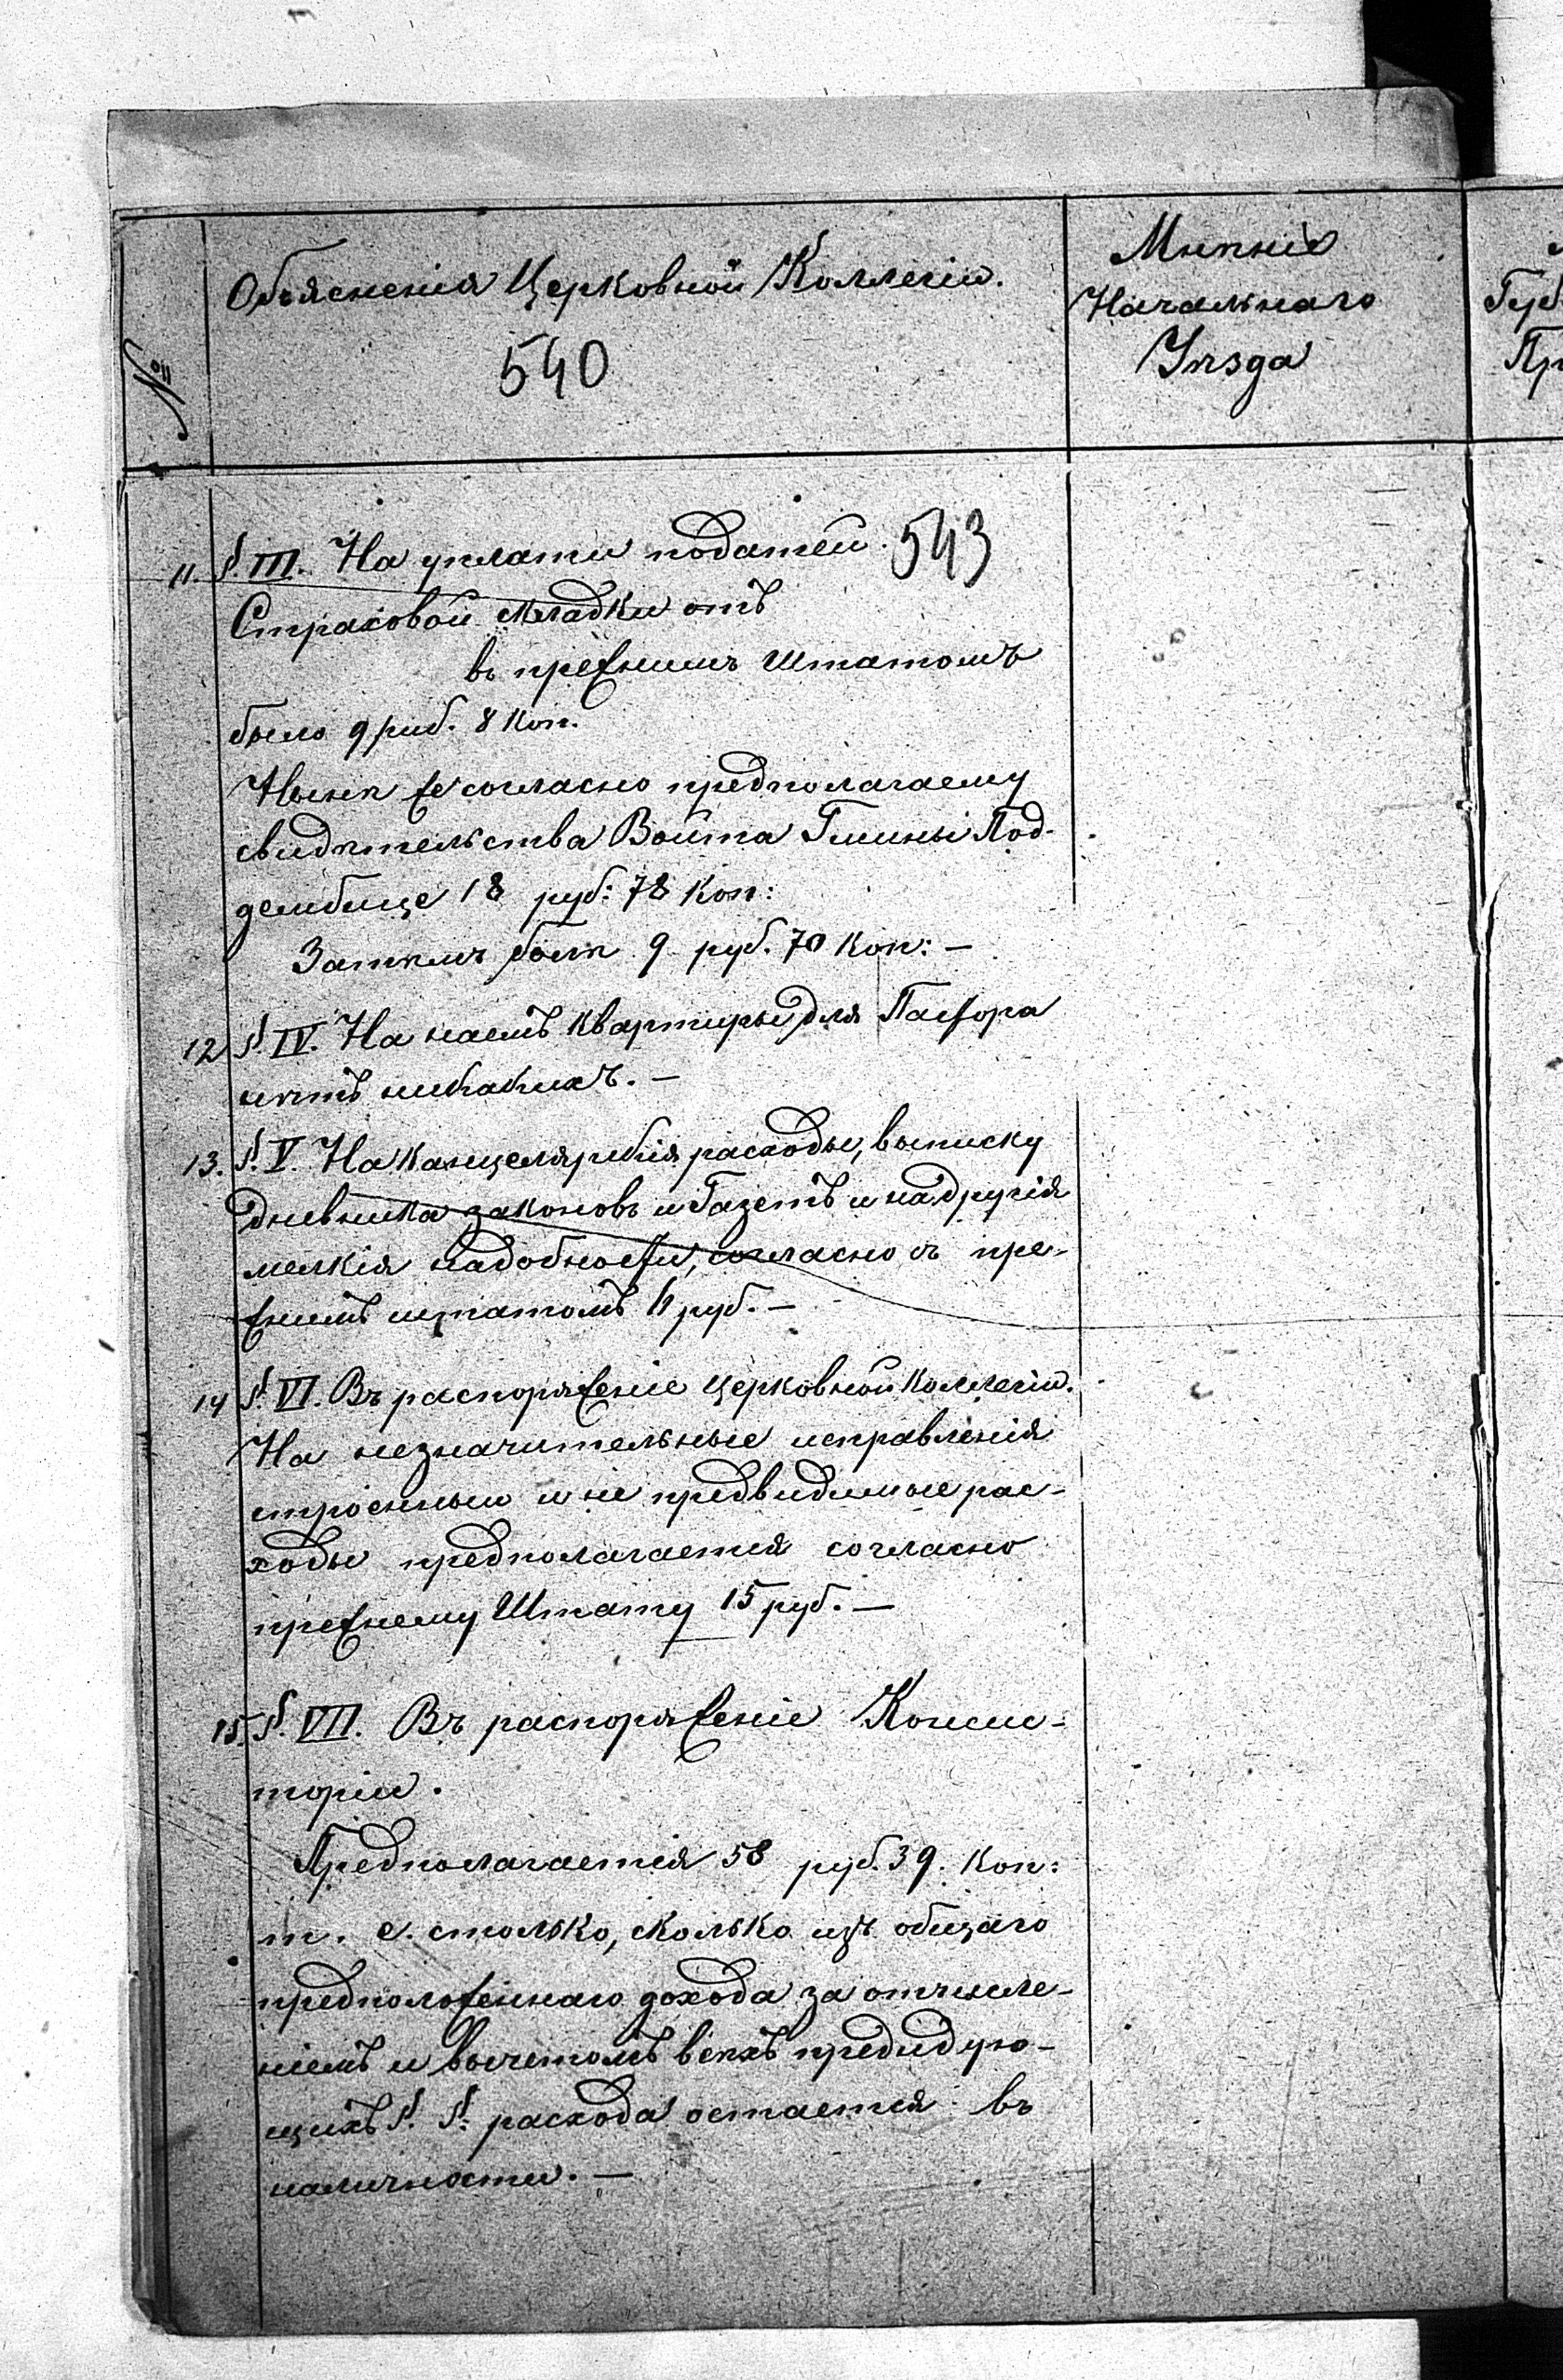 №
Объясненія Церковной Коллегіи.
540
Мнѣніе
Начальнаго
Уѣзда
Губ
Пр
11. §. III. На уплати податей. 543
Страховой складки отъ
въ прежнимъ Штатомъ
было 9 руб. 8 Коп.
Нынѣ же согласно предполагаему
свидѣтельства Войта Гмины Под-
дембице 18 руб: 78 Коп:
Затѣмъ болѣ 9 руб. 70 Коп: —
12 §. IV. На наемъ квартиры для Пастора
нѣтъ никакихъ. —
13. §. V. На канцелярскія расходы, выписку
дневника законовъ и Газетъ и на другія
мелкія надобности, согласно съ пре-
жнимъ штатомъ 11 руб. —
14 §. VI. Въ распоряженіе Церковной Коллегіи.
На незначительные исправленія
строеніи и не предвидимые рас-
ходы предполагается согласно
прежнему Штату 15 руб. —
15. §. VII. Въ распоряженіе Консис-
торіи.
Предполагается 58 руб. 39. Коп:
т. е. столько, сколько изъ общаго
предположеннаго дохода за отчисле-
ніемъ и вычетомъ всѣхъ предидую-
щихъ §. §: расхода остается въ
наличности. —